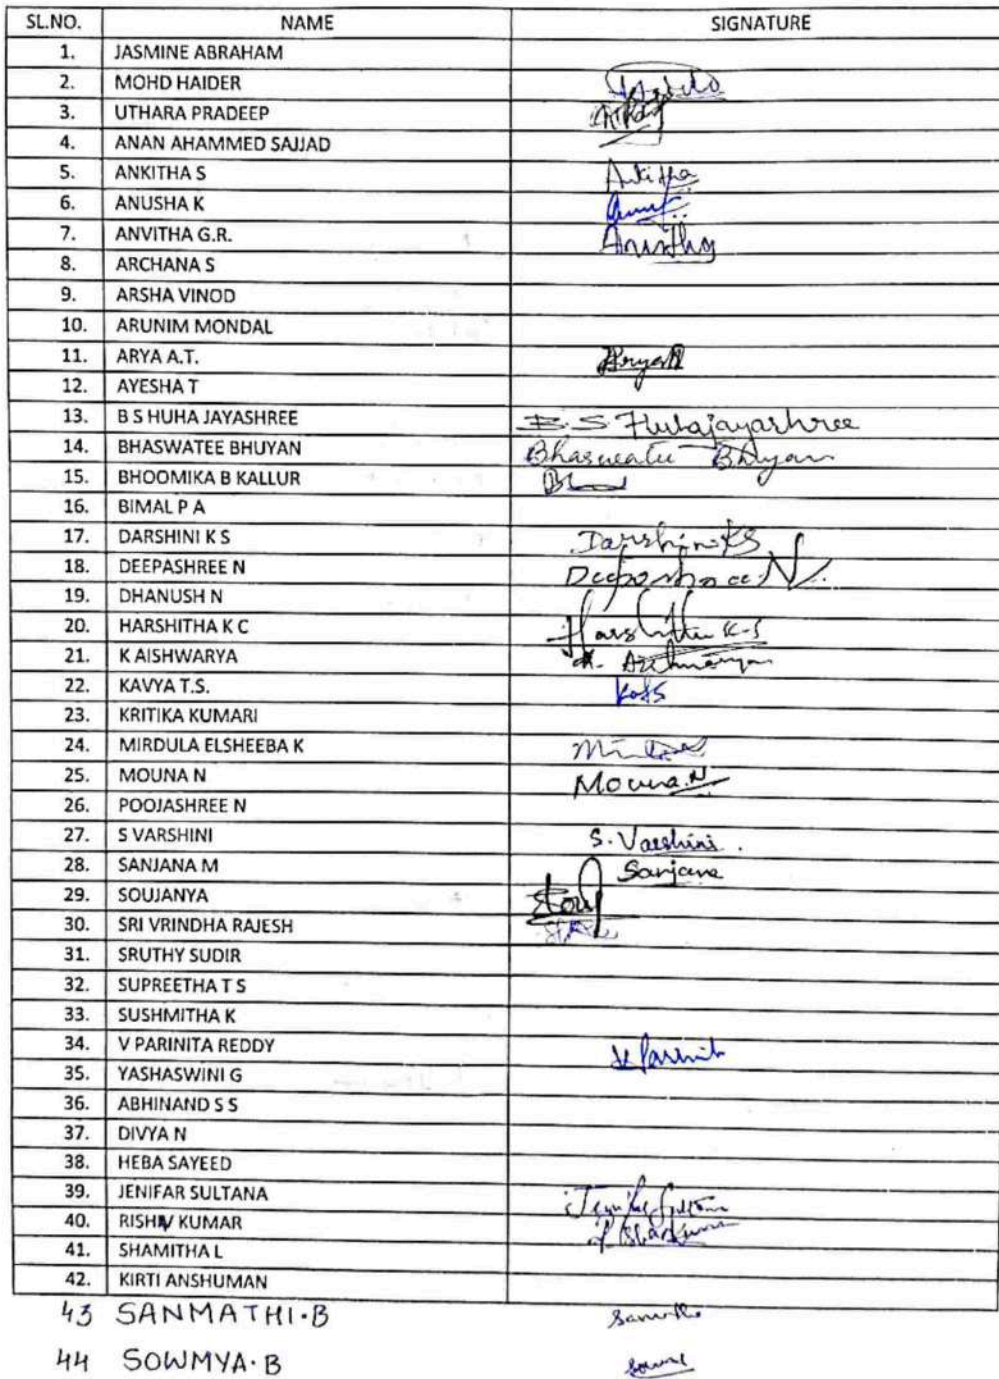 SL.NO. NAME SIGNATURE
1. JASMINE ABRAHAM
2. MOHD HAIDER
3. UTHARA PRADEEP
4. ANAN AHAMMED SAJJAD
5. ANKITHA S Ankitha
6. ANUSHA K
7. ANVITHA G.R. Anvitha
8. ARCHANA S
9. ARSHA VINOD
10. ARUNIM MONDAL
11. ARYA A.T.
12. AYESHA T
13. B S HUHA JAYASHREE B.S Huhajayashree
14. BHASWATEE BHUYAN Bhaswatee Bhuyan
15. BHOOMIKA B KALLUR
16. BIMAL P A
17. DARSHINI K S Darshini KS
18. DEEPASHREE N Deepashree N
19. DHANUSH N
20. HARSHITHA K C
21. K AISHWARYA
22. KAVYA T.S.
23. KRITIKA KUMARI
24. MIRDULA ELSHEEBA K
25. MOUNA N Mouna.N
26. POOJASHREE N
27. S VARSHINI S. Varshini.
28. SANJANA M Sanjana
29. SOUJANYA
30. SRI VRINDHA RAJESH
31. SRUTHY SUDIR
32. SUPREETHA T S
33. SUSHMITHA K
34. V PARINITA REDDY
35. YASHASWINI G
36. ABHINAND S S
37. DIVYA N
38. HEBA SAYEED
39. JENIFAR SULTANA
40. RISHAV KUMAR
41. SHAMITHA L
42. KIRTI ANSHUMAN
43 SANMATHI.B
44 SOWMYA.B